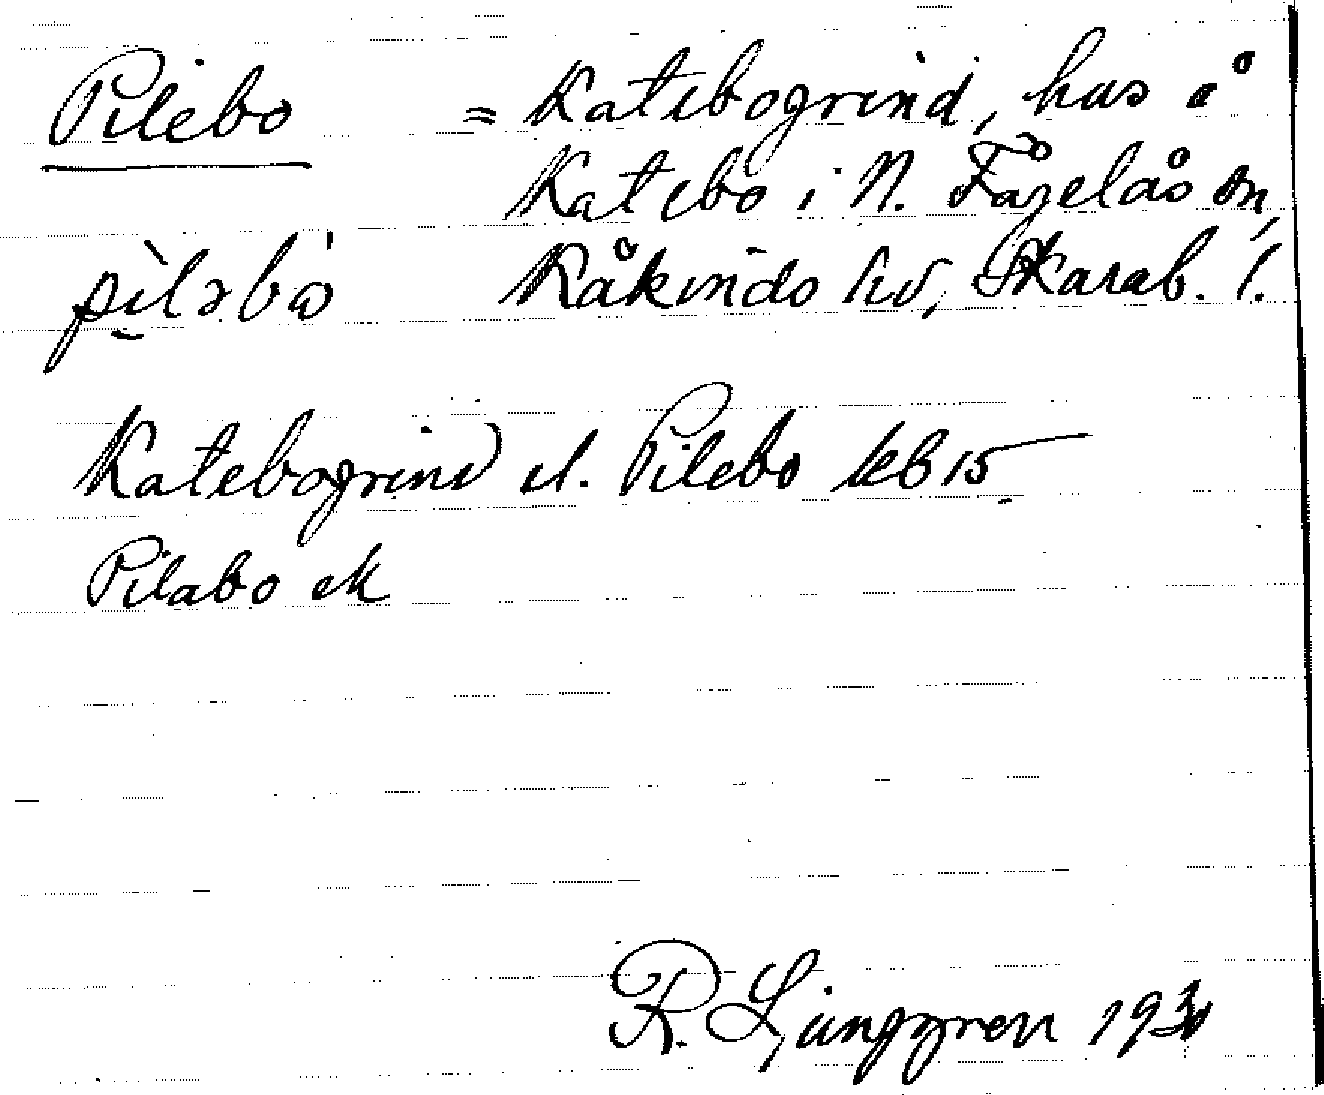 Pilebo = Katebogrind, hus å
Katebo i N. Fågelås sn,
pìləbó Kåkinds hd, Skarab. l.
Katebogrind el. Pilebo kb 15
Pilabo ek
R. Ljunggren